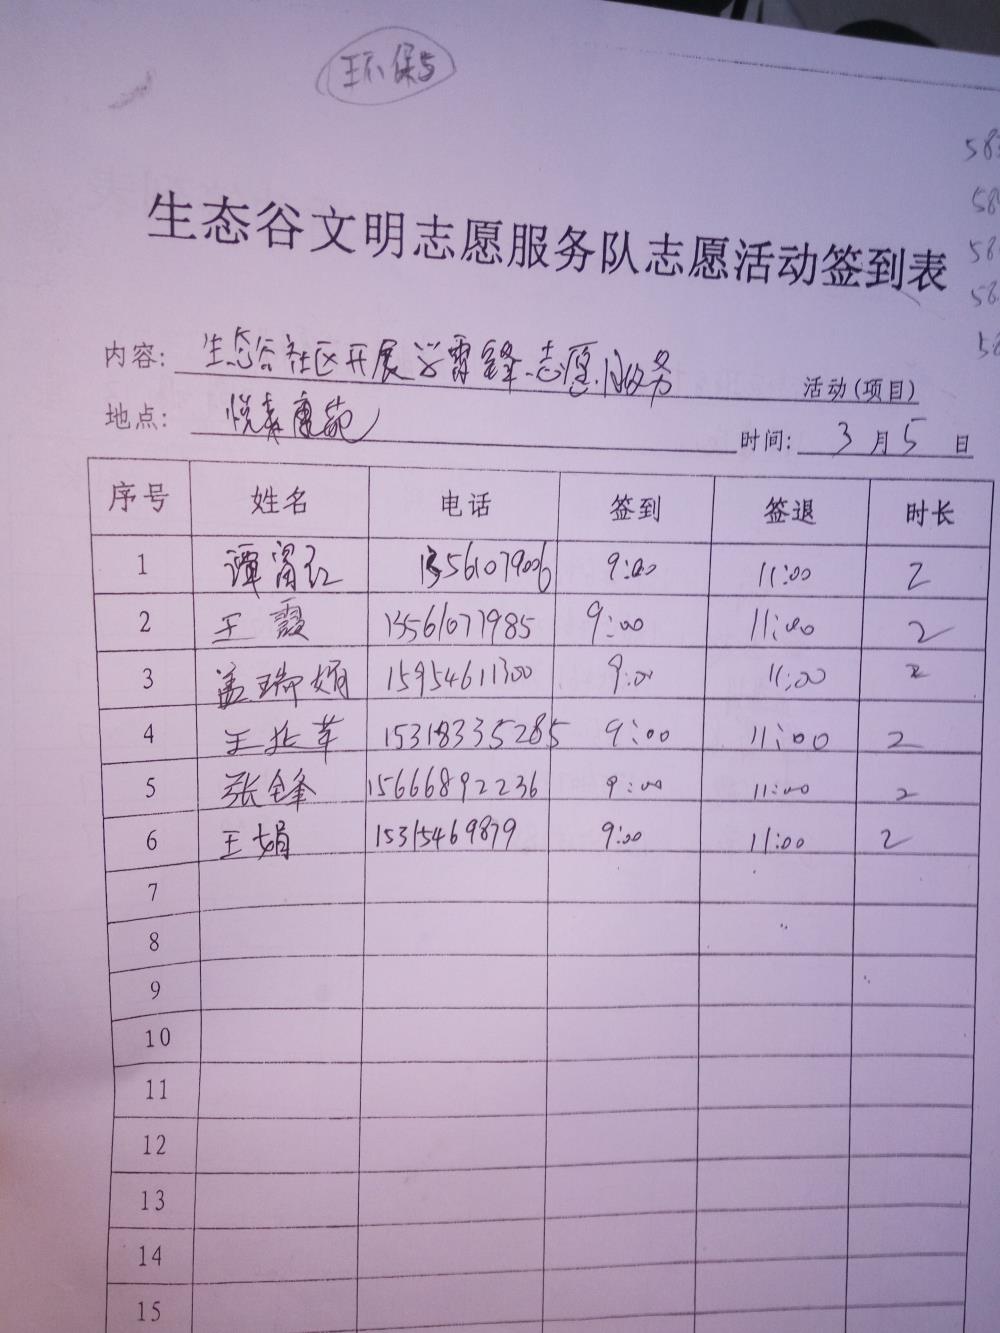 环保
生态谷文明志愿服务队志愿活动签到表
内容: 生态谷社区开展学雷锋志愿服务 活动(项目)
地点: 悦来康苑
时间: 3 月 5 日
序号 姓名 电话 签到 签退 时长
1 谭富红 13561079006 9:00 11:00 2
2 王霞 13561077985 9:00 11:00 2
3 盖瑞娟 15954611300 9:00 11:00 2
4 王 苹 15318335285 9:00 11:00 2
5 张锋 15666892236 9:00 11:00 2
6 王娟 15315469879 9:00 11:00 2
7
8
9
10
11
12
13
14
15